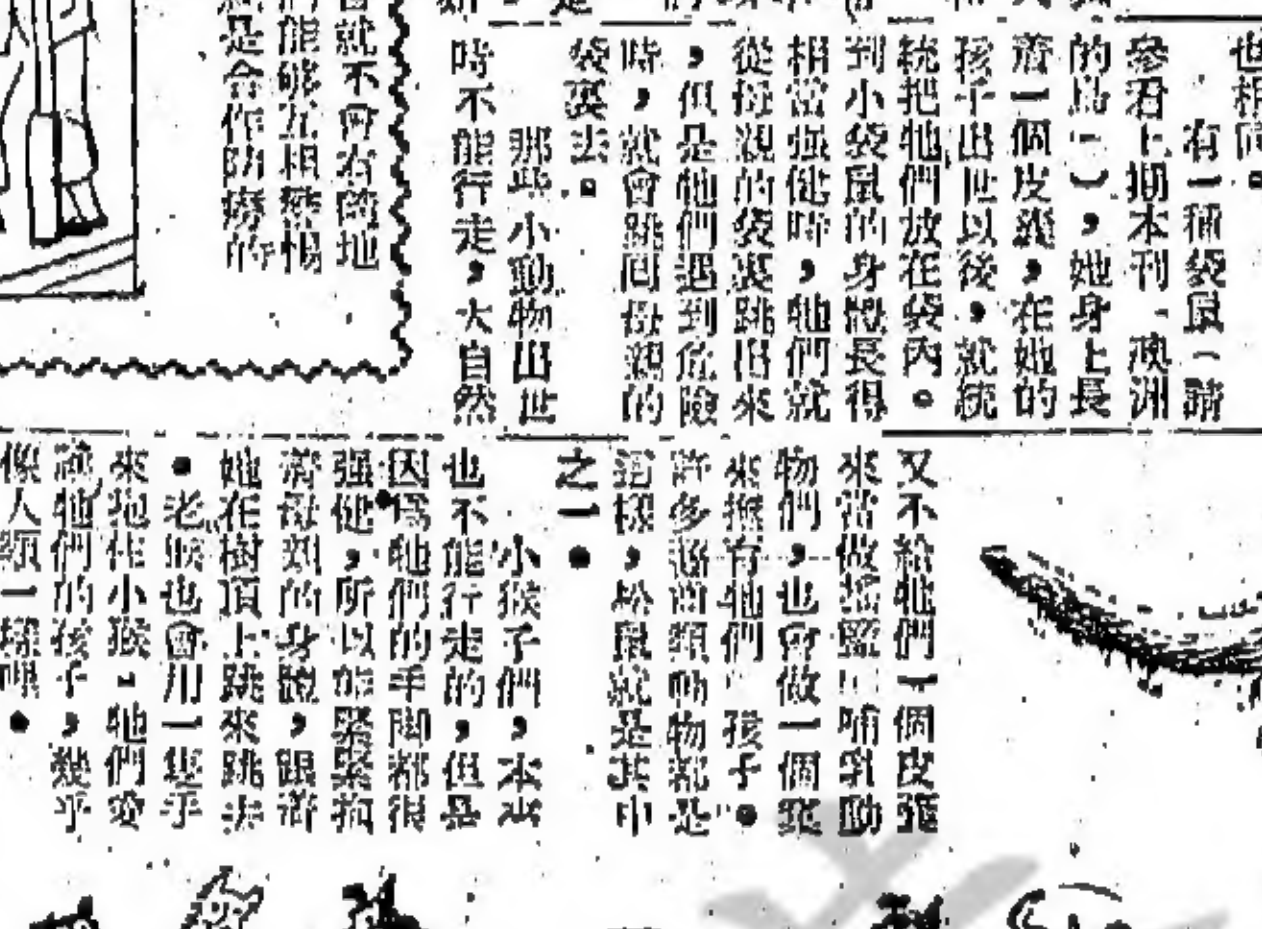 也相同。
有一種袋鼠（請
參看上期本刊「澳洲
的島」），她身上長
着一個皮囊，在她的
孩子出世以後，就統
統把牠們放在袋內。
到小袋鼠的身體長得
相當强健時，牠們就
從母親的袋裏跳出來
，但是牠們遇到危險
時，就會跳回母親的
袋裏去。
那些小動物出世
時不能行走，大自然
又不給牠們一個皮張
來當做搖籃 哺乳動
物們，也會做一個窠
來撫育牠們 孩子。
許多 類動物都是
這樣，松鼠就是其中
之一。
小猴子們，本來
也不能行走的，但是
因爲牠們的手脚都很
强健，所以能緊緊抱
着母親的身體，跟着
她在樹頂上跳來跳去
。老猴也會用一隻手
來抱住小猴，牠們愛
護牠們的孩子，幾乎
像人類一樣哩。
就不會 地
能够互相 惕
是合作防 的